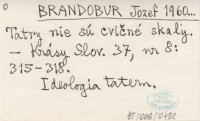 0
BRANDOBUR Jozef 1960...
Tatry nie sú cvičné skaly.
– Krásy Slov. 37, nr 8:
315–318.
Ideologia tatern.